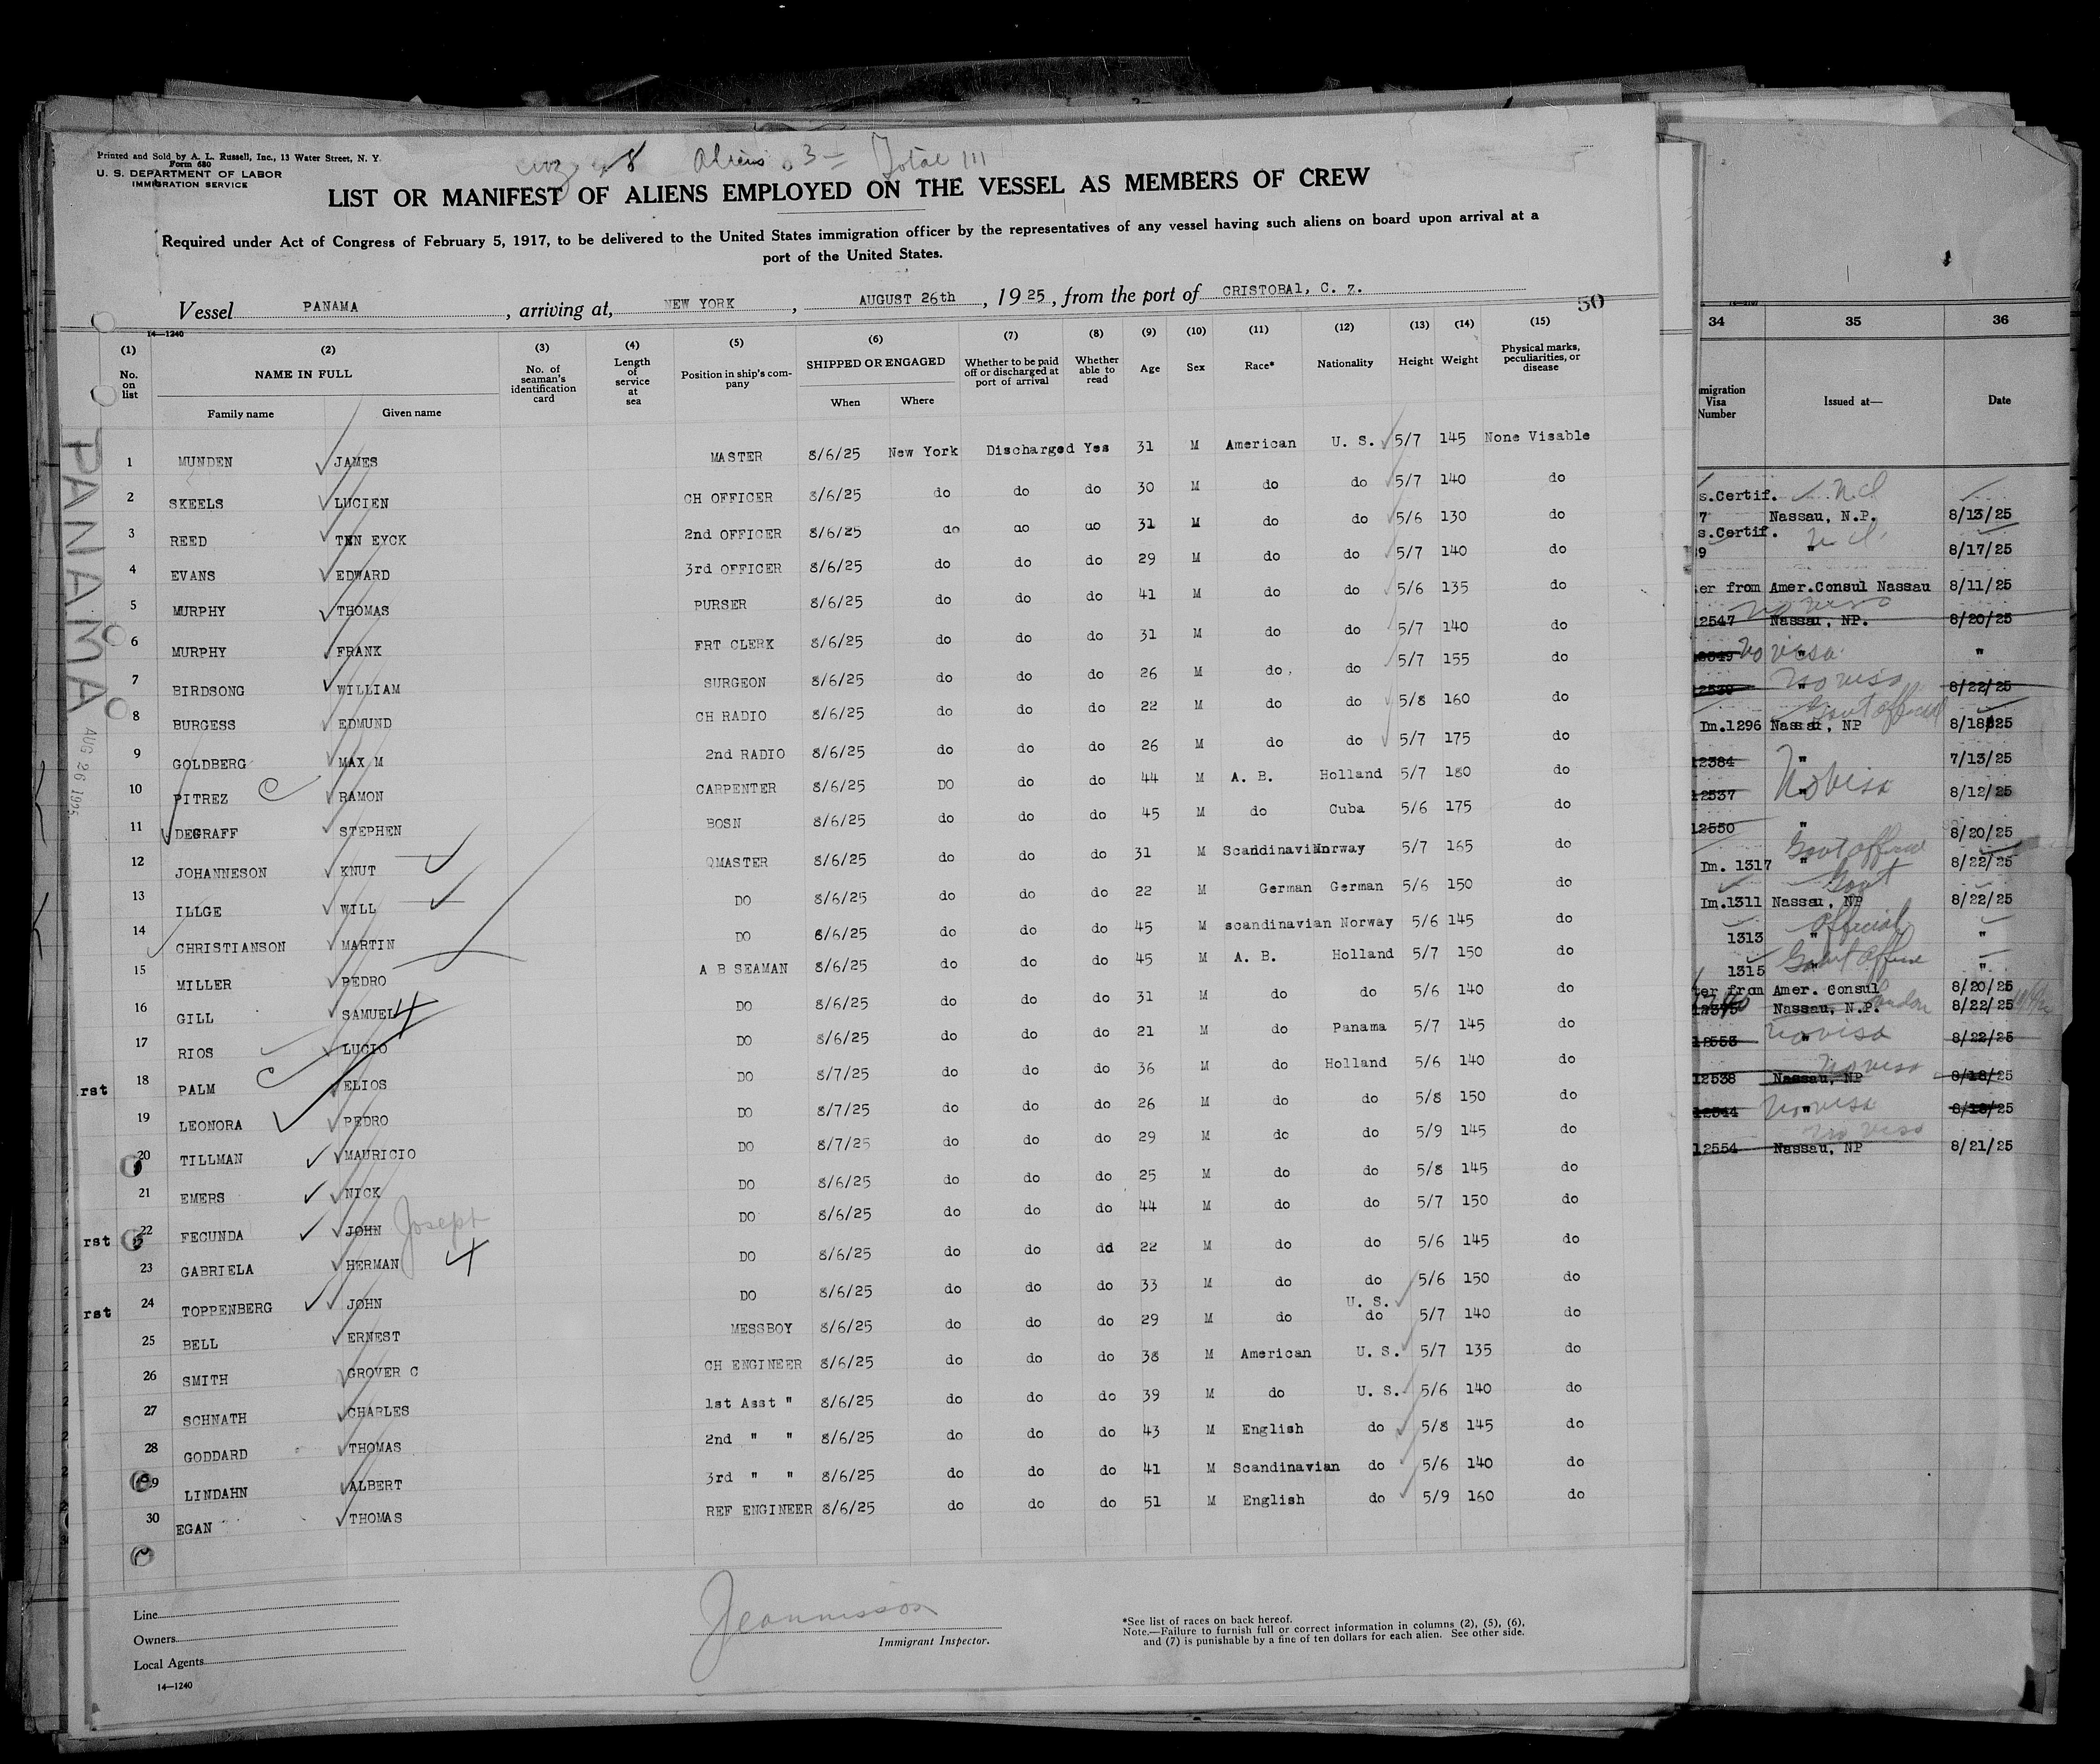 Printed and Sold by A. L. Russell, Inc., 13 Water Street, N. Y.
Form 680
U. S. DEPARTMENT OF LABOR
IMMIGRATION SERVICE
8 Aliens 3 = Total 111
LIST OR MANIFEST OF ALIENS EMPLOYED ON THE VESSEL AS MEMBERS OF CREW
Required under Act of Congress of February 5, 1917, to be delivered to the United States immigration officer by the representatives of any vessel having such aliens on board upon arrival at a
port of the United States.
Vessel PANAMA, arriving at, NEW YORK, AUGUST 26th, 1925, from the port of CRISTOBAl, C. Z.
50
14—1240
(1) (2) (3) (4) (5) (6) (7) (8) (9) (10) (11) (12) (13) (14) (15)
No. on list NAME IN FULL Family name Given name No. of seaman's identification card Length of service at sea Position in ship's company SHIPPED OR ENGAGED When Where Whether to be paid off or discharged at port of arrival Whether able to read Age Sex Race* Nationality Height Weight Physical marks, peculiarities, or disease
PANAMA
AUG 26 1925
1 MUNDEN JAMES MASTER 8/6/25 New York Discharged Yes 31 M American U. S. 5/7 145 None Visable
2 SKEELS LUCIEN CH OFFICER 8/6/25 do do do 30 M do do 5/7 140 do
3 REED TEN EYCK 2nd OFFICER 8/6/25 do do do 31 M do do 5/6 130 do
4 EVANS EDWARD 3rd OFFICER 8/6/25 do do do 29 M do do 5/7 140 do
5 MURPHY THOMAS PURSER 8/6/25 do do do 41 M do do 5/6 135 do
6 MURPHY FRANK FRT CLERK 8/6/25 do do do 31 M do do 5/7 140 do
7 BIRDSONG WILLIAM SURGEON 8/6/25 do do do 26 M do do 5/7 155 do
8 BURGESS EDMUND CH RADIO 8/6/25 do do do 22 M do do 5/8 160 do
9 GOLDBERG MAX M 2nd RADIO 8/6/25 do do do 26 M do do 5/7 175 do
10 PITREZ RAMON CARPENTER 8/6/25 DO do do 44 M A. B. Holland 5/7 180 do
11 DEGRAFF STEPHEN BOSN 8/6/25 do do do 45 M do Cuba 5/6 175 do
12 JOHANNESON KNUT QMASTER 8/6/25 do do do 31 M Scandinavian Norway 5/7 165 do
13 ILLGE WILL DO 8/6/25 do do do 22 M German German 5/6 150 do
14 CHRISTIANSON MARTIN DO 8/6/25 do do do 45 M scandinavian Norway 5/6 145 do
15 MILLER PEDRO A B SEAMAN 8/6/25 do do do 45 M A. B. Holland 5/7 150 do
16 GILL SAMUEL DO 8/6/25 do do do 31 M do do 5/6 140 do
17 RIOS LUCIO DO 8/6/25 do do do 21 M do Panama 5/7 145 do
18 PALM ELIOS DO 8/7/25 do do do 36 M do Holland 5/6 140 do
19 LEONORA PEDRO DO 8/7/25 do do do 26 M do do 5/8 150 do
20 TILLMAN MAURICIO DO 8/7/25 do do do 29 M do do 5/9 145 do
21 EMERS NICK DO 8/6/25 do do do 25 M do do 5/8 145 do
22 FECUNDA JOHN Joseph DO 8/6/25 do do do 44 M do do 5/7 150 do
23 GABRIELA HERMAN DO 8/6/25 do do dd 22 M do do 5/6 145 do
24 TOPPENBERG JOHN DO 8/6/25 do do do 33 M do do 5/6 150 do
25 BELL ERNEST MESSBOY 8/6/25 do do do 29 M do U. S. do 5/7 140 do
26 SMITH GROVER C CH ENGINEER 8/6/25 do do do 38 M American U. S. 5/7 135 do
27 SCHNATH CHARLES 1st Asst " 8/6/25 do do do 39 M do U. S. 5/6 140 do
28 GODDARD THOMAS 2nd " " 8/6/25 do do do 43 M English do 5/8 145 do
29 LINDAHN ALBERT 3rd " " 8/6/25 do do do 41 M Scandinavian do 5/6 140 do
30 EGAN THOMAS REF ENGINEER 8/6/25 do do do 51 M English do 5/9 160 do
rst
rst
rst
Line
Owners
Local Agents
14—1240
Immigrant Inspector.
*See list of races on back hereof.
Note.—Failure to furnish full or correct information in columns (2), (5), (6),
and (7) is punishable by a fine of ten dollars for each alien. See other side.
34 35 36
migration Visa Number Issued at— Date
s.Certif.
7 Nassau, N.P. 8/13/25
s.Certif.
9 " 8/17/25
er from Amer.Consul Nassau 8/11/25
no visa
2547 Nassau, NP. 8/20/25
2549 No visa " "
2539 No visa " 8/22/25
Govt official
Im.1296 Nassau, NP 8/18/25
12384 " 7/13/25
12537 No visa " 8/12/25
12550 " 8/20/25
Govt official
Im. 1317 " 8/22/25
Govt
Im.1311 Nassau, NP 8/22/25
Official
1313 " "
Govt
1315 " "
ter from Amer. Consul 8/20/25
12375 Nassau, N.P. London 8/22/25
12553 No visa " 8/22/25
No visa
12538 Nassau, NP 8/18/25
12544 No visa " 8/18/25
No visa
12554 Nassau, NP 8/21/25